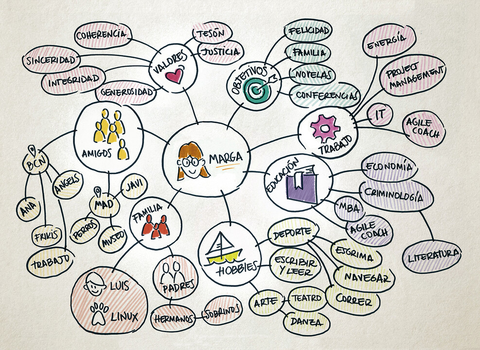 COHERENCIA
SINCERIDAD
INTEGRIDAD
GENEROSIDAD
VALORES
TESÓN
JUSTICIA
OBJETIVOS
FELICIDAD
FAMILIA
NOVELAS
CONFERENCIAS
ENERGÍA
PROJECT
MANAGEMENT
IT
AGILE
COACH
TRABAJO
AMIGOS
BCN
ANA
FRIKIS
TRABAJO
ANGELS
MAD
JAVI
PERROS
MUSEO
MARGA
EDUCACIÓN
ECONOMÍA
CRIMINOLOGÍA
MBA
AGILE
COACH
LITERATURA
FAMILIA
LUIS
LINUX
PADRES
HERMANOS
SOBRINOS
HOBBIES
DEPORTE
ESCRIBIR
Y LEER
ESGRIMA
NAVEGAR
CORRER
ARTE
TEATRO
DANZA